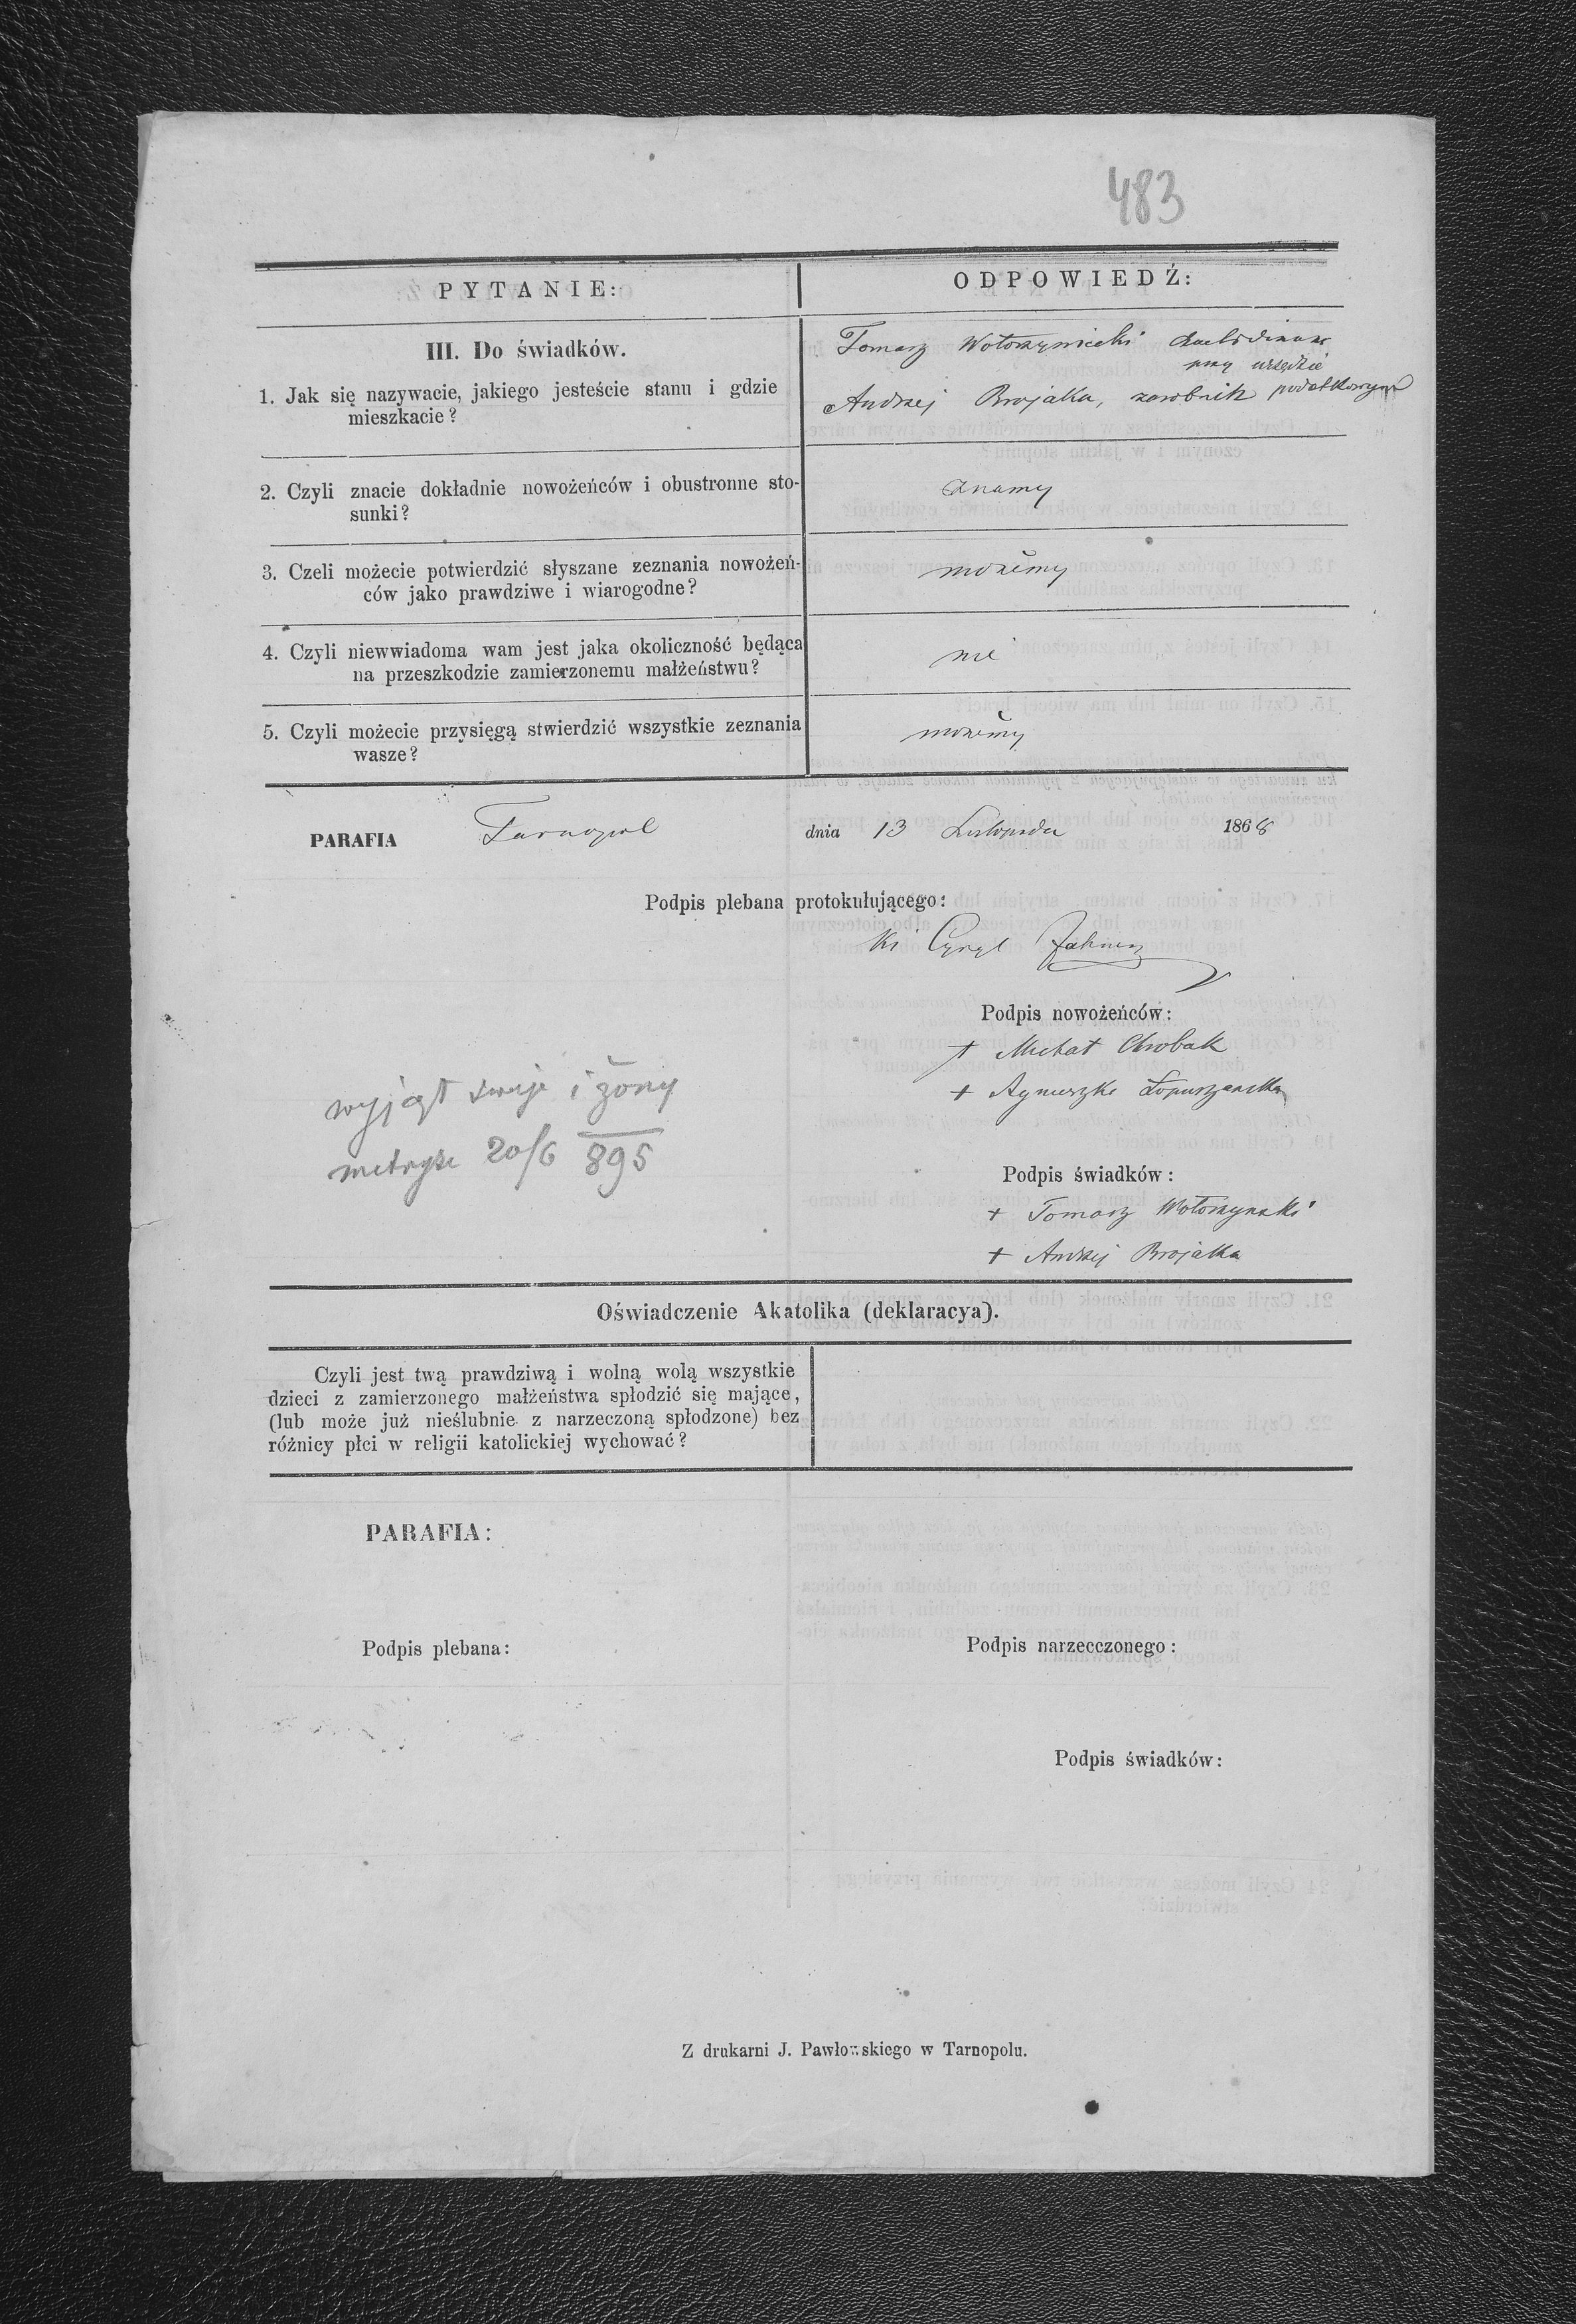 483
PYTANIE:
ODPOWIEDŹ:
III. Do świadków.
1. Jak się nazywacie, jakiego jesteście stanu i gdzie
mieszkacie?
Tomasz
przy urzędzie
Andrzej Brojaka, zarobnik podatkowym
2. Czyli znacie dokładnie nowożeńców i obustronne sto-
sunki?
znamy
3. Czeli możecie potwierdzić słyszane zeznania nowożeń-
ców jako prawdziwe i wiarogodne?
możemy
4. Czyli niewwiadoma wam jest jaka okoliczność będąca
na przeszkodzie zamierzonemu małżeństwu?
nie
5. Czyli możecie przysięgą stwierdzić wszystkie zeznania
wasze?
możemy
PARAFIA Tarnopol dnia 13 Listopada 1868
Podpis plebana protokułującego:
Cyryl
Podpis nowożeńców:
+ Michał Chrobak
+ Agnieszka Łopuszanska
wyjął swoje i żony
metryke 20/6 895
Podpis świadków:
+ Tomasz Wołoszynski
+ Andrzej Brojaka
Oświadczenie Akatolika (deklaracya).
Czyli jest twą prawdziwą i wolną wolą wszystkie
dzieci z zamierzonego małżeństwa spłodzić się mające,
(lub może już nieślubnie z narzeczoną spłodzone) bez
różnicy płci w religii katolickiej wychować?
PARAFIA:
Podpis plebana:
Podpis narzecczonego:
Podpis świadków:
Z drukarni J. Pawłowskiego w Tarnopolu.